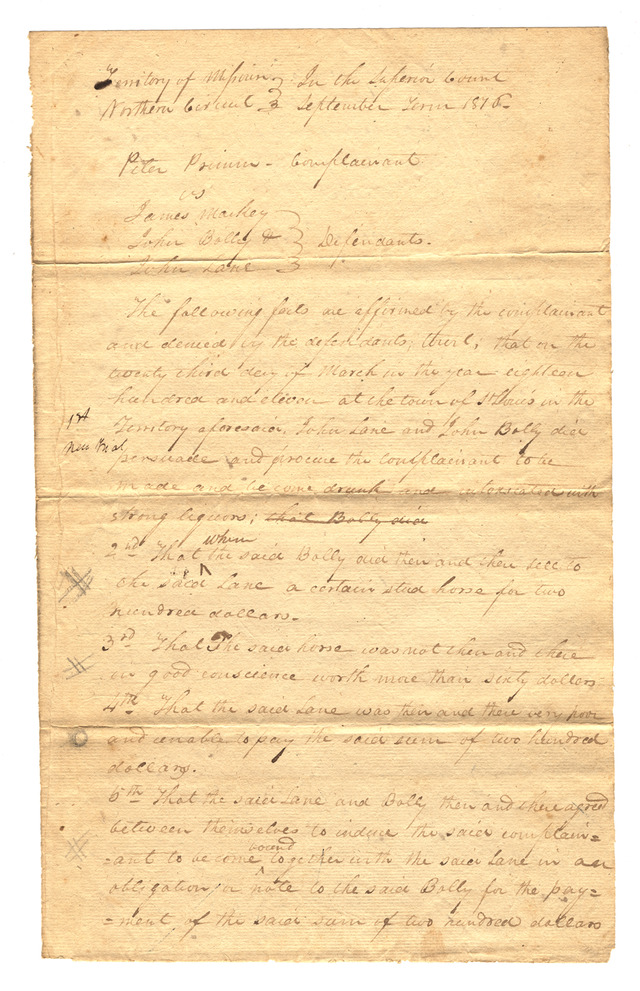 Territory of Missouri } In the Superior Court
Northern Circuit } September Term 1816
Peter Primm - Complainant
vs
James Mackey
John Bolly & } Defendants.
John Lane }
The following facts are affirmed by the complainant
and denied by the defendants; that on the
twenty third day of March in the year eighteen
hundred and eleven at the town of St Louis in the
1st Territory aforesaid, John Lane and John Bolly did
persuade and procure the complainant to be
made and become drunk and intoxicated with
strong liquors; that Bolly did
when
2nd That the said Bolly did then and then sell to
the said Lane a certain stud horse for two
hundred dollars.
3rd That The said horse was not then and there
in good conscience worth more than sixty dollars
4th That the said Lane was then and there very poor
and unable to pay the said sum of two hundred
dollars.
5th That the said Lane and Bolly then and there agreed
between themselves to induce the said complain=
bound
=ant to become together with the said Lane in an
obligation or note to the said Bolly for the pay=
=ment of the said sum of two hundred dollars